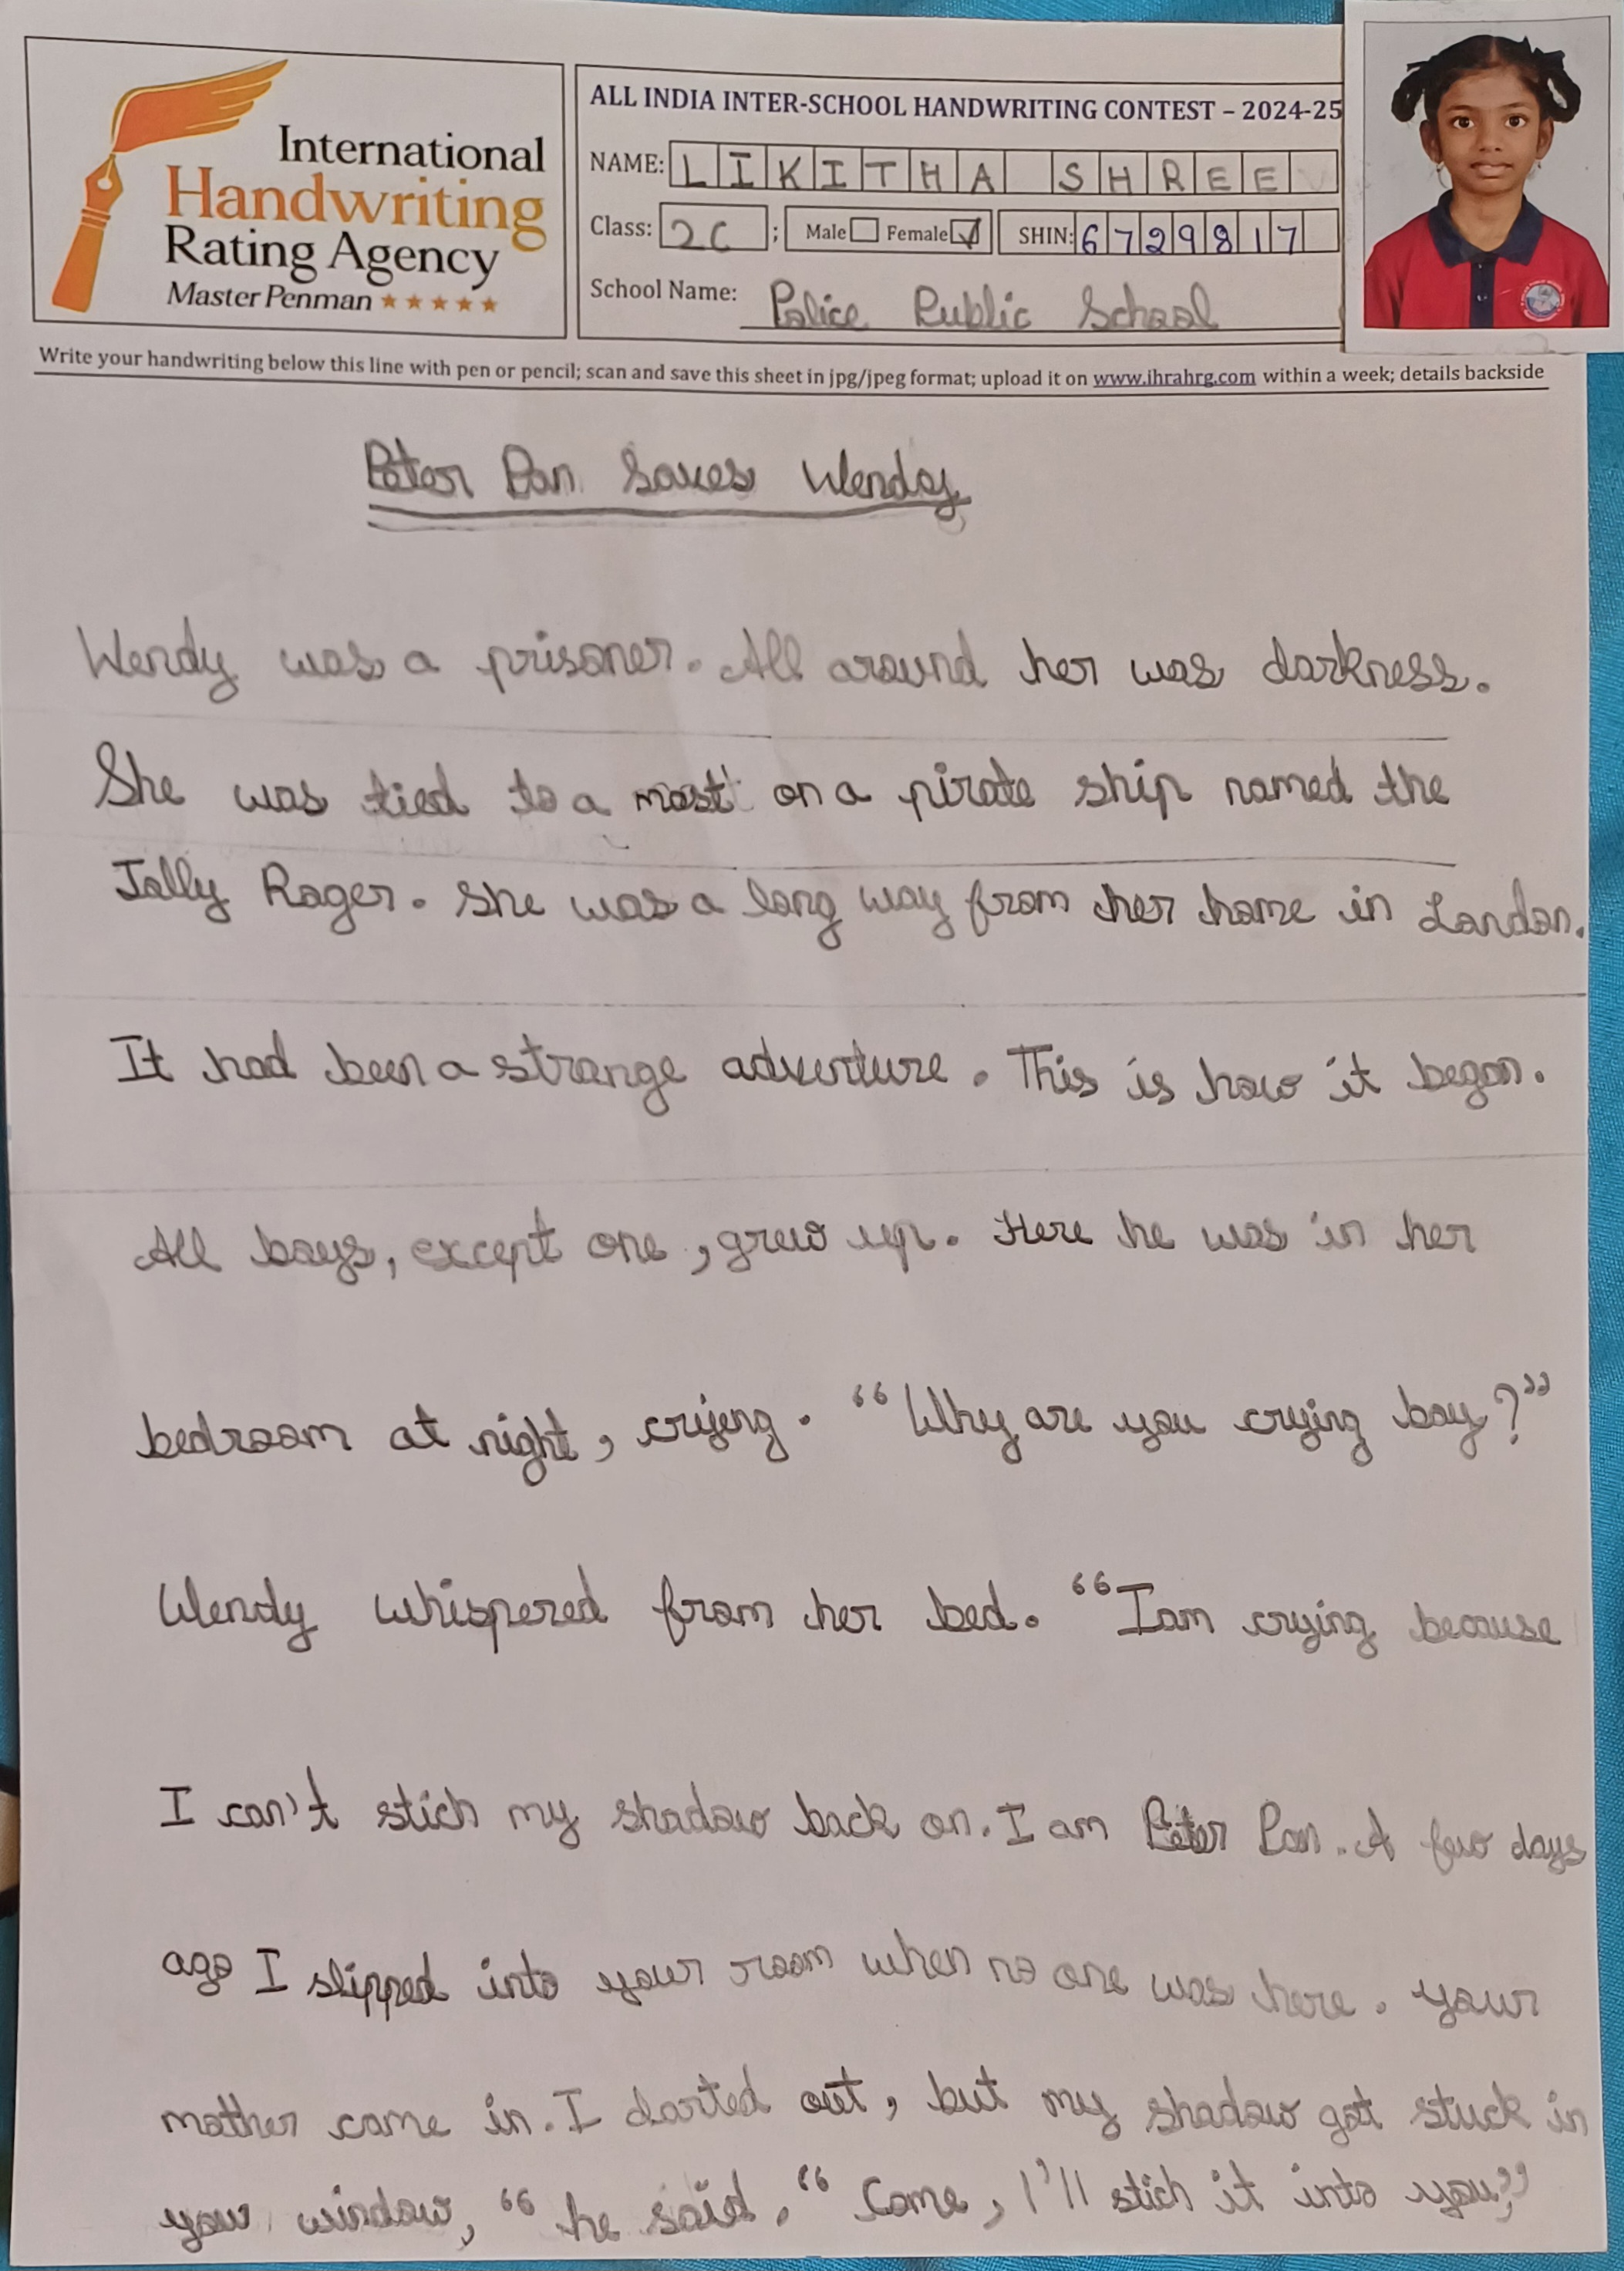 International
Handwriting
Rating Agency
Master Penman ★★★★★
ALL INDIA INTER-SCHOOL HANDWRITING CONTEST – 2024-25
NAME: LIKITHA SHREE
Class: 2C ; Male Female SHIN: 6729817
School Name: Police Public School
Write your handwriting below this line with pen or pencil; scan and save this sheet in jpg/jpeg format; upload it on www.ihrahrg.com within a week; details backside
Peter Pan Saves Wendy
Wendy was a prisoner. All around her was darkness.
She was tied to a mast on a pirate ship named the
Jolly Roger. She was a long way from her home in London.
It had been a strange adventure. This is how it began.
All boys, except one, grew up. Here he was in her
bedroom at night, cryieng. “Why are you crying boy?”
Wendy whispered from her bed. “I am crying because
I can't stich my shadow back on. I am Peter Pan. A few days
ago I slipped into your room when no one was here. your
mother came in. I darted out, but my shadow got stuck in
your window, “he said. “Come, I'll stich it into you,”